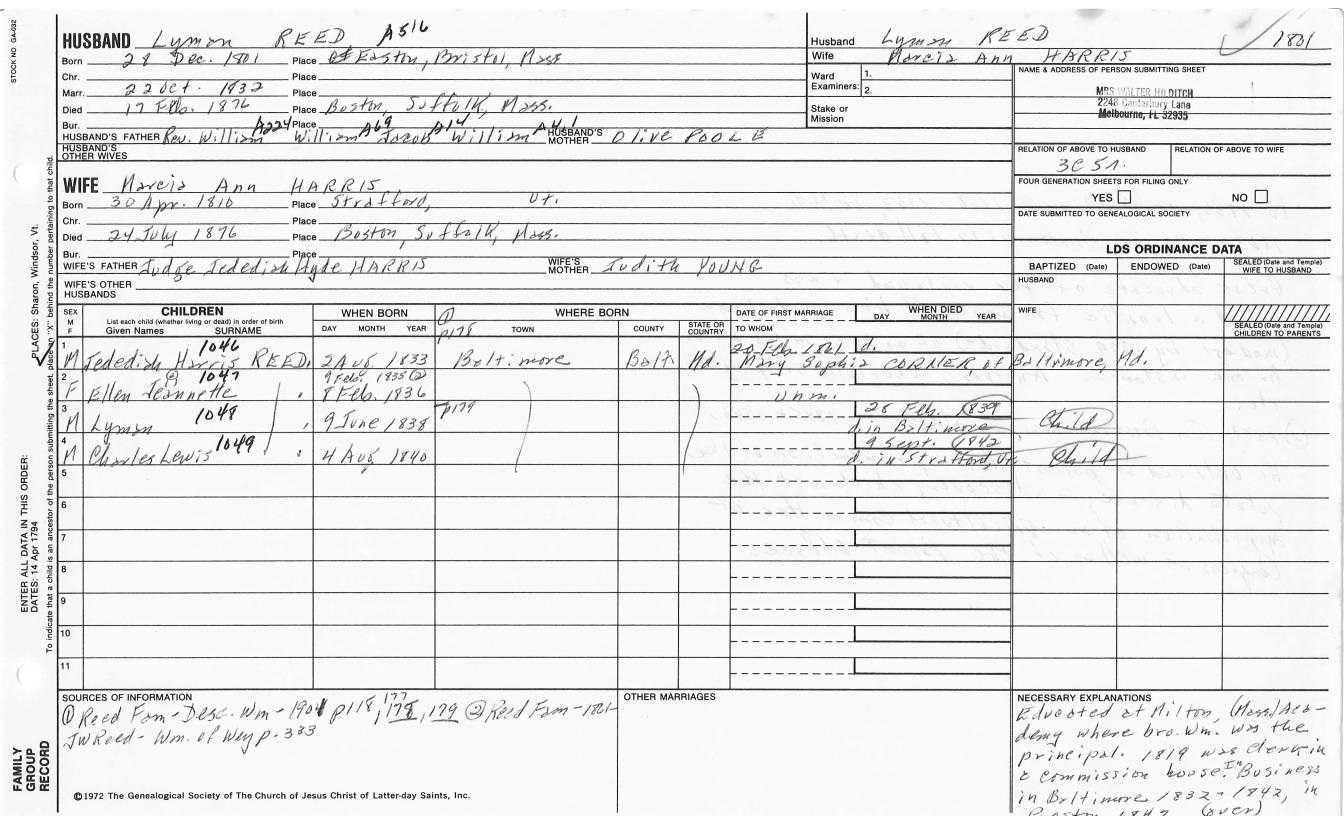 STOCK NO. GA-032
HUSBAND Lyman REED A516
Born 28 Dec. 1801 Place Easton, Bristol, Mass
Chr. Place
Marr. 22 Oct. 1832 Place
Died 17 Feb. 1876 Place Boston, Suffolk, Mass.
Bur. Place
HUSBAND'S FATHER Rev. William A224 William A69 Jacob A14 William A4-1 HUSBAND'S MOTHER Olive POOLE
HUSBAND'S OTHER WIVES
WIFE Marcia Ann HARRIS
Born 30 Apr. 1810 Place Strafford, Vt.
Chr. Place
Died 24 July 1876 Place Boston, Suffolk, Mass.
Bur. Place
WIFE'S FATHER Judge Jedediah Hyde HARRIS WIFE'S MOTHER Judith YOUNG
WIFE'S OTHER HUSBANDS
Husband Lyman REED 1801
Wife Marcia Ann HARRIS
Ward Examiners: 1.
2.
Stake or Mission
NAME & ADDRESS OF PERSON SUBMITTING SHEET
MRS WALTER HILDITCH
2248 Canterbury Lane
Melbourne, FL 32935
RELATION OF ABOVE TO HUSBAND RELATION OF ABOVE TO WIFE
3C 5r.
FOUR GENERATION SHEETS FOR FILING ONLY
YES NO
DATE SUBMITTED TO GENEALOGICAL SOCIETY
LDS ORDINANCE DATA
BAPTIZED (Date) ENDOWED (Date) SEALED (Date and Temple) WIFE TO HUSBAND
HUSBAND
WIFE
SEALED (Date and Temple) CHILDREN TO PARENTS
SEX M F
CHILDREN
List each child (whether living or dead) in order of birth
Given Names SURNAME
WHEN BORN
DAY MONTH YEAR
① p178
WHERE BORN
TOWN COUNTY STATE OR COUNTRY
DATE OF FIRST MARRIAGE
TO WHOM
WHEN DIED
DAY MONTH YEAR
1 M Jedediah Harris REED. 1046 2 Aug. 1833 Baltimore Balt Md. 20 Feb. 1861 d.
Mary Sophia CORNER, of Baltimore, Md.
2 F Ellen Jeannette ② 1047 9 Feb. 1835 ②
8 Feb. 1836 unm.
3 M Lyman 1048 9 June 1838 p179 28 Feb. 1839
d. in Baltimore Child
4 M Charles Lewis 1049 4 Aug 1840 9 Sept. 1842
d. in Strafford, Vt. Child
5
6
7
8
9
10
11
SOURCES OF INFORMATION
① Reed Fam - Desc. Wm - 1901 p118, 177, 178, 179 ② Reed Fam - 1861
JW Reed - Wm. of Wey p. 333
OTHER MARRIAGES
NECESSARY EXPLANATIONS
Educated at Milton, (Mass.) Aca-
demy where bro. Wm. was the
principal. 1819 was clerk in
a commission house. In Business
in Baltimore 1832-1842, in
Boston 1842 (over)
©1972 The Genealogical Society of The Church of Jesus Christ of Latter-day Saints, Inc.
FAMILY GROUP RECORD
ENTER ALL DATA IN THIS ORDER:
DATES: 14 Apr 1794
PLACES: Sharon, Windsor, Vt.
To indicate that a child is an ancestor of the person submitting the sheet, place an "X" behind the number pertaining to that child.